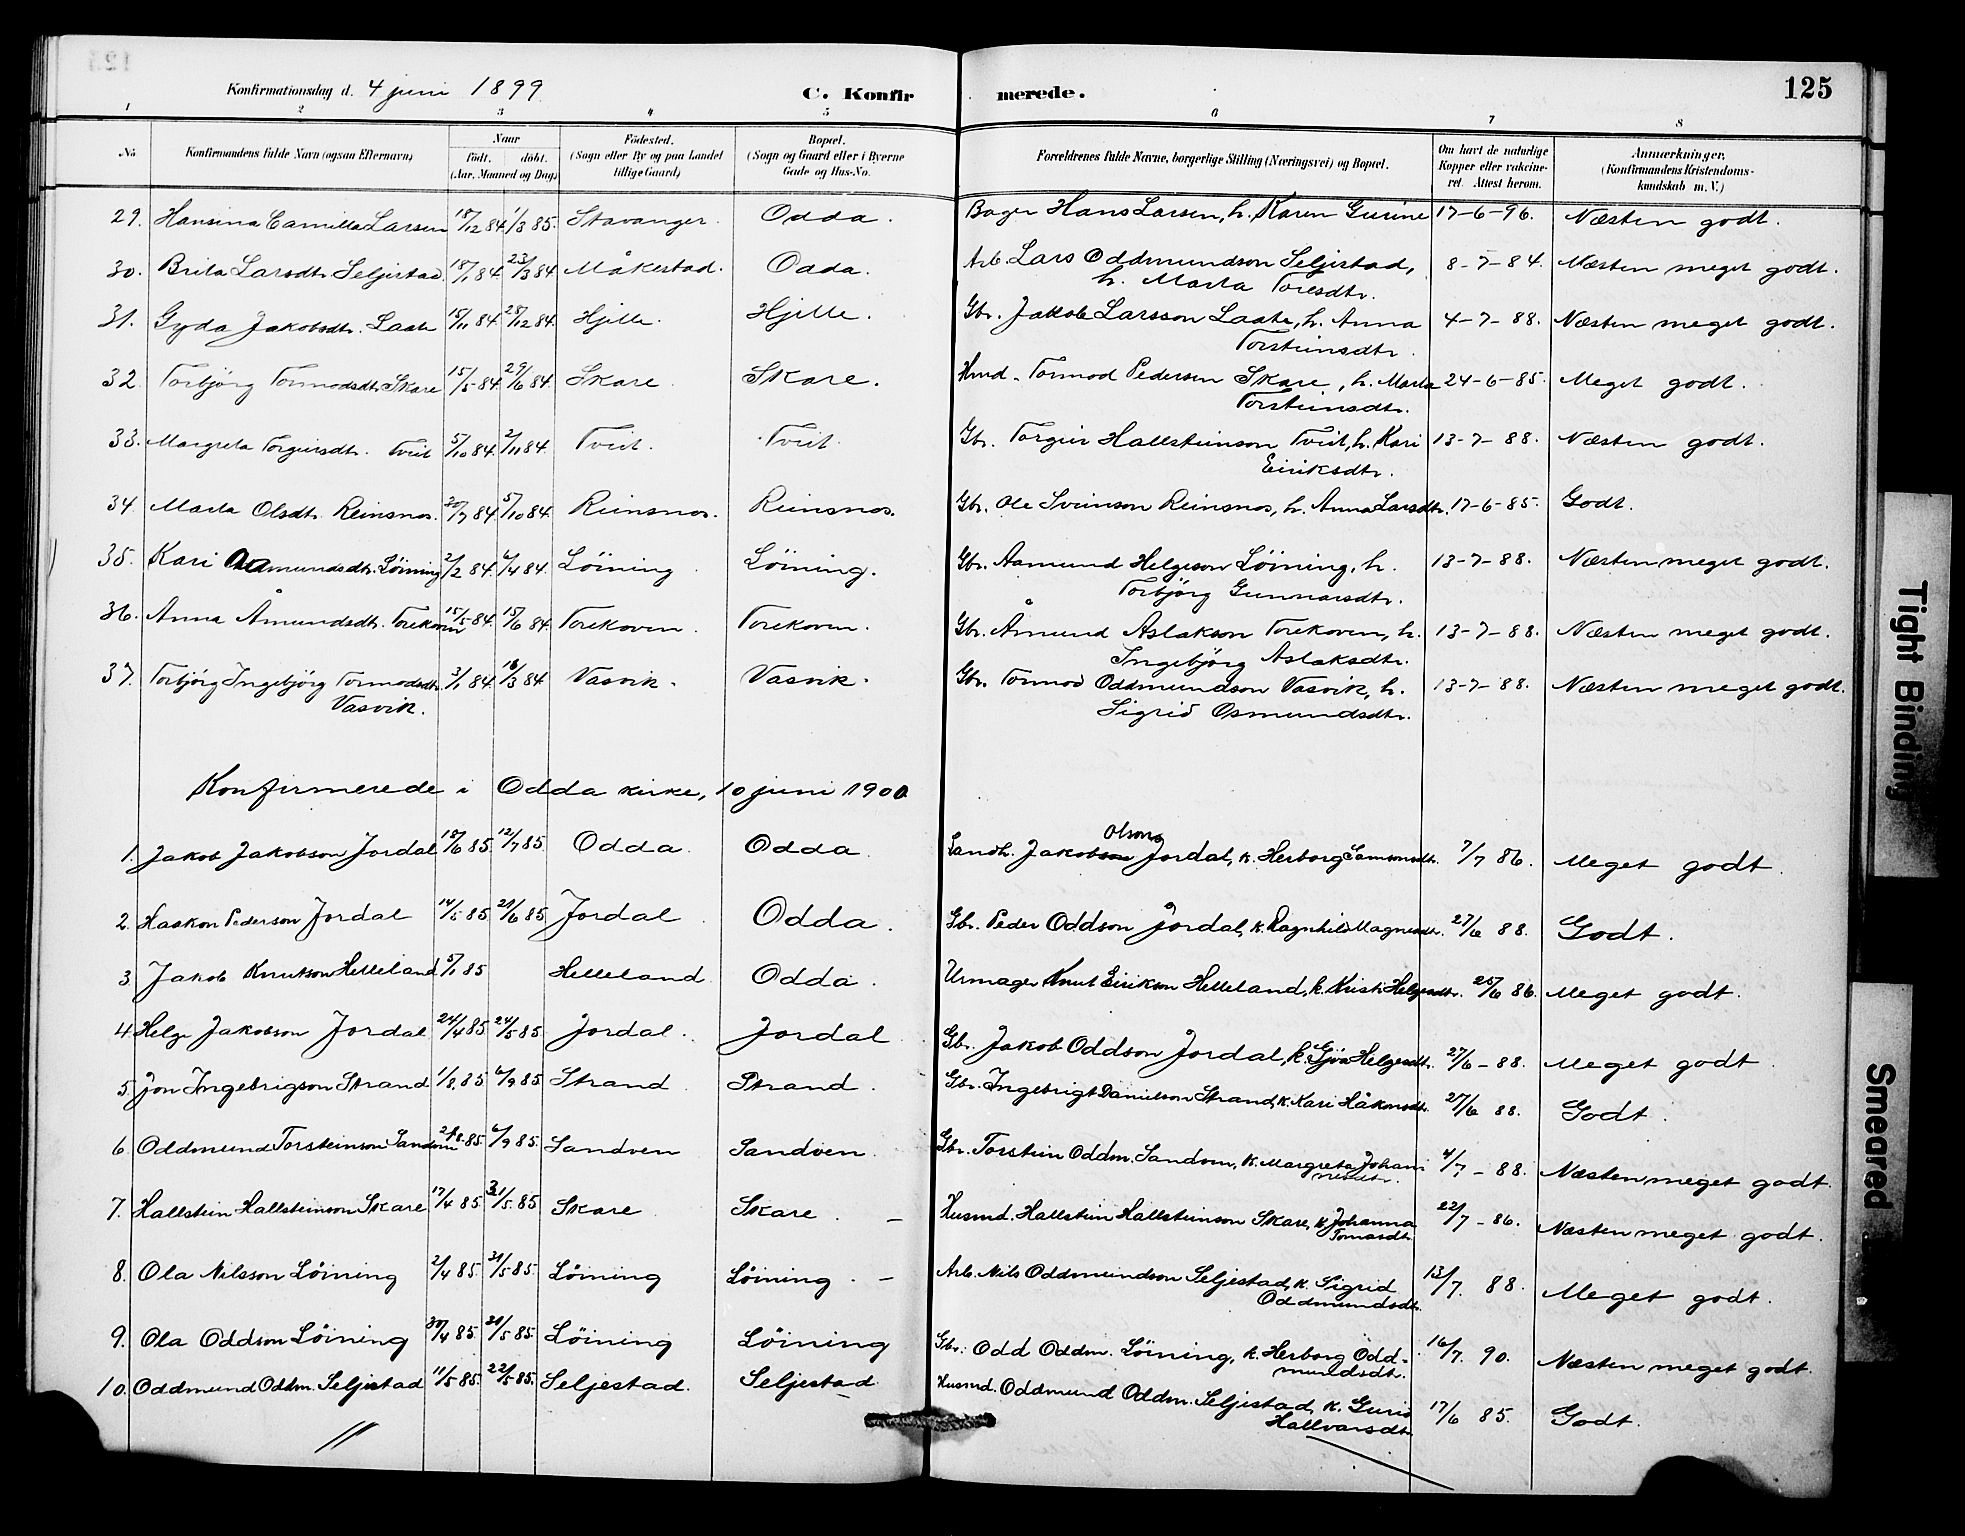 125
Konfirmationsdag d. 4 juni 1899. C. Konfirmerede.
1 2 3 4 5 6 7 8
No. Konfirmandens fulde Navn (ogsaa Efternavn) Naar födt. döbt. (Aar, Maaned og Dag) Födested. (Sogn eller By og paa Landet tillige Gaard) Bopæl. (Sogn og Gaard eller i Byerne Gade og Hus-No. Forældrenes fulde Navne, borgerlige Stilling (Næringsvei) og Bopæl. Om havt de naturlige Kopper eller vakcineret. Attest herom. Anmærkninger. (Konfirmandens Kristendomskundskab m. V.)
29. Hansina Camilla Larsen 18/12 84 1/3 85. Stavanger. Odda. Bager Hans Larsen, h. Karen Gurine 17-6-96. Næsten godt.
30. Brita Larsdtr. Seljestad 18/1 84 23/3 84 Måkestad. Odda. Arb. Lars Oddmundson Seljestad, 8-7-84. Næsten meget godt.
h. Marta Toresdtr.
31. Gyda Jakobsdtr. Laate 15/11 84 28/12 84. Hjelle. Hjelle. Gbr. Jakob Larsson Laate, h. Anna 4-7-88. Næsten meget godt.
Torsteinsdtr.
32. Torbjörg Tormodsdtr. Skare 15/5 84 29/6 84. Skare. Skare. Hmd. Tormod Pedersen Skare, h. Marta 24-6-85. Meget godt.
Torsteinsdtr.
33. Margreta Torgeirsdtr. Tveit 5/10 84. 2/11 84. Tveit. Tveit. Gbr. Torgeir Hallsteinson Tveit, h. Kari 13-7-88. Næsten godt.
Eiriksdtr.
34. Marta Olsdtr. Reinsnos. 30/7 84 5/10 84. Reinsnos. Reinsnos. Gbr. Ole Sveinson Reinsnos, h. Anna Larsdtr. 17-6-85. Godt.
35. Kari Aamundsdtr. Löining 2/2 84. 6/4 84. Löining Löining. Gbr. Aamund Helgeson Löining, h. 13-7-88. Næsten meget godt.
Torbjörg Gunnarsdtr.
36. Anna Åmundsdtr. Torekoven 15/5 84. 15/6 84. Torekoven. Torekoven. Gbr. Åmund Aslakson Torekoven, h. 13-7-88. Næsten meget godt.
Ingebjörg Aslaksdtr.
37. Torbjörg Ingebjörg Tormodsdtr. 3/1 84. 16/3 84 Vasvik. Vasvik. Gbr. Tormod Oddmundson Vasvik, h. 13-7-88. Næsten meget godt.
Vasvik. Sigrid Osmundsdtr.
Konfirmerede i Odda kirke, 10 juni 1900
Olsons
1. Jakob Jakobson Jordal 18/6 85 12/7 85. Odda. Odda. Landh. Jakobson Jordal, k. Herborg Samsonsdtr. 7/7 86. Meget godt.
2. Haakon Pederson Jordal 14/5 85 21/6 85 Jordal. Odda. Gbr. Peder Oddson Jordal, k. Ragnhild Magnusdtr. 27/6 88. Godt.
3. Jakob Knutson Helleland 5/1 85 Helleland Odda. Urmager Knut Eirikson Helleland, k. Kristi Helgesdtr. 25/6 86. Meget godt.
4. Helge Jakobson Jordal 24/4 85 24/5 85. Jordal. Jordal. Gbr. Jakob Oddson Jordal, k. Gjöa Helgesdtr. 27/6-88. Meget godt.
5. Jon Ingebrigson Strand 1/8 85 6/9 85. Strand. Strand. Gbr. Ingebrigt Danielson Strand, k. Kari Håkonsdtr. 27/6 88. Godt.
6. Oddmund Torsteinson Sandven 85. 6/9 85. Sandven Sandven. Gbr. Torstein Oddm. Sandven, k. Margreta Johan- 4/7-88. Næsten meget godt.
nesdtr.
7. Hallstein Hallsteinson Skare 17/4 85. 31/5 85 Skare. Skare. – Husmd. Hallstein Hallsteinson Skare, k. Johanna 22/7-86. Næsten meget godt.
Tomasdtr.
8. Ola Nilsson Löining 2/4 85. 31/5 85. Löining Löining. – Arb. Nils Oddmundson Seljestad, k. Sigrid 13/7. 88. Meget godt.
Oddmundsdtr.
9. Ola Oddson Löining 30/4 85. 31/5 85. Löining Löining Gbr. Odd Oddm. Löining, k. Herborg Odd- 16/7. 90. Næsten meget godt.
mundsdtr.
10. Oddmund Oddm. Seljestad 11/5 85. 22/5 85. Seljestad. Seljestad. Husmd. Oddmund Oddm. Seljestad, k. Guro 17/6 85. Godt.
Hallvarsdtr.
Tight Binding
Smeared